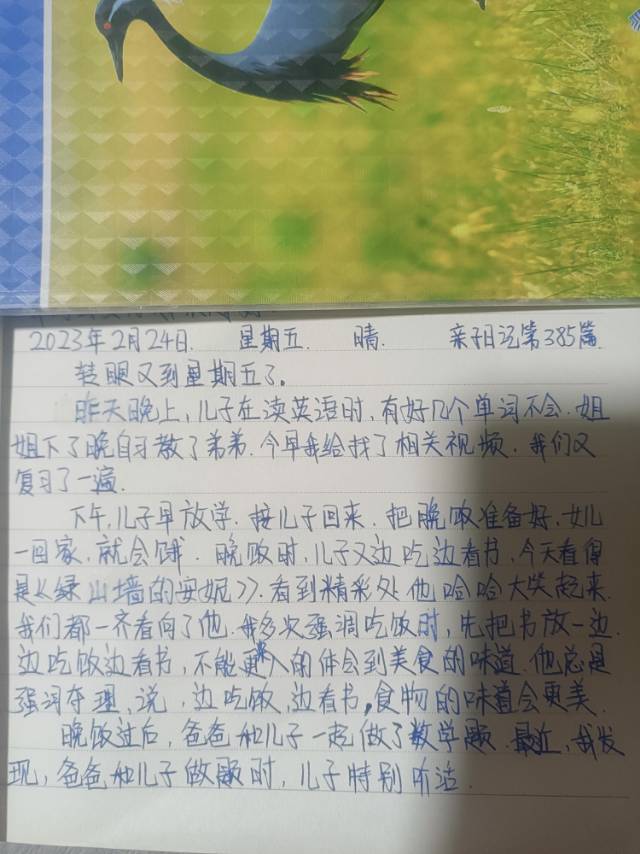 2023年2月24日. 星期五. 晴. 亲子日记第385篇.
转眼又到星期五了。
昨天晚上,儿子在读英语时,有好几个单词不会.姐
姐下了晚自习教了弟弟.今早我给找了相关视频.我们又
复习了一遍.
下午,儿子早放学.接儿子回来.把晚饭准备好,女儿
一回家.就会饿.晚饭时,儿子又边吃边看书,今天看得
是《绿山墙的安妮》.看到精彩处他哈哈大笑起来.
我们都一齐看向了他.我多次强调吃饭时,先把书放一边.
边吃饭边看书,不能更深入的体会到美食的味道.他总是
强词夺理,说,边吃饭,边看书,食物的味道会更美.
晚饭过后,爸爸和儿子一起做了数学题.最近,我发
现,爸爸和儿子做题时,儿子特别听话.